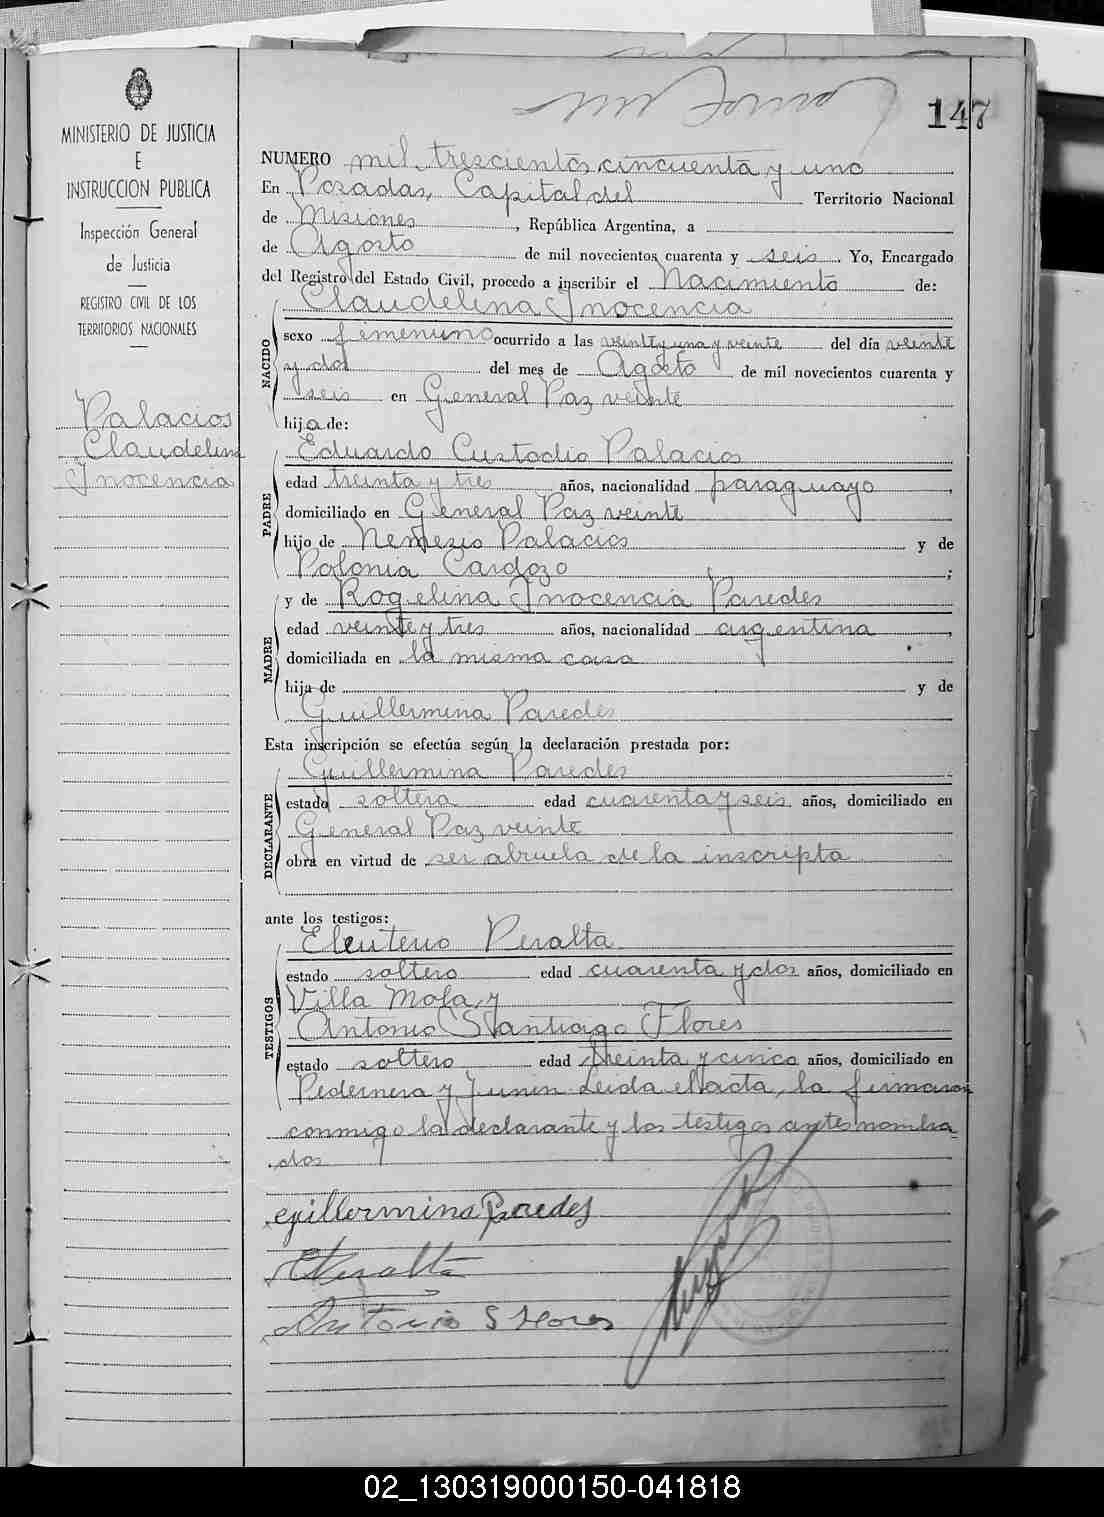 147
MINISTERIO DE JUSTICIA
E
INSTRUCCION PUBLICA
Inspección General
de Justicia
REGISTRO CIVIL DE LOS
TERRITORIOS NACIONALES
Palacios
Claudelina
Inocencia
NUMERO mil trescientos cincuenta y uno
En Posadas, Capital del Territorio Nacional
de Misiones, República Argentina, a
de Agosto de mil novecientos cuarenta y seis. Yo, Encargado
del Registro del Estado Civil, procedo a inscribir el Nacimiento de:
NACIDO
Claudelina Inocencia
sexo femenino ocurrido a las veinte y una y veinte del día veinte
y dos del mes de Agosto de mil novecientos cuarenta y
seis en General Paz veinte
hija de:
PADRE
Eduardo Custodio Palacios
edad treinta y tres años, nacionalidad paraguayo,
domiciliado en General Paz veinte
hijo de Nemezio Palacios y de
Polonia Cardozo;
MADRE
y de Rogelina Inocencia Paredes
edad veinte y tres años, nacionalidad argentina,
domiciliada en la misma casa
hija de y de
Guillermina Paredes
Esta inscripción se efectúa según la declaración prestada por:
DECLARANTE
Guillermina Paredes
estado soltera edad cuarenta y seis años, domiciliado en
General Paz veinte
obra en virtud de ser abuela de la inscripta
ante los testigos:
TESTIGOS
Eleuterio Peralta
estado soltero edad cuarenta y dos años, domiciliado en
Villa Mola, y
Antonio Santiago Flores
estado soltero edad treinta y cinco años, domiciliado en
Pedernera y Junin Leida el acta, la firmaron
conmigo la declarante y los testigos antes nombra
dos
Guillermina Paredes
EPeralta
Antonio S Flores
02_130319000150-041818